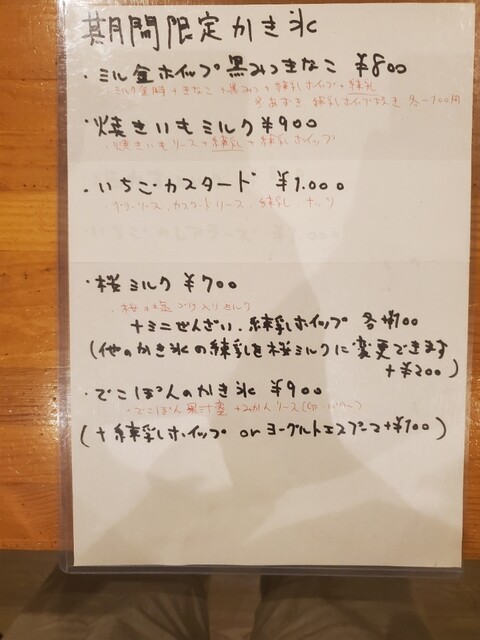 期間限定かき氷
・ミル金ホイップ黒みつきなこ ¥800
ミルク金時+きなこ+黒みつ+練乳ホイップ+練乳
※あずき 練乳ホイップ抜き 各-100円
・焼きいもミルク ¥900
・焼きいもソース+練乳+練乳ホイップ
・いちごカスタード ¥1.000
ソース、カスタードソース、練乳、
・桜ミルク ¥700
入りミルク
+ミニぜんざい、練乳ホイップ 各¥100
(他のかき氷の練乳を桜ミルクに変更できます
+¥200)
・でこぽんのかき氷 ¥900
・でこぽん果汁蜜+みかんソース
(+練乳ホイップ or ヨーグルトエスプーマ+¥100)